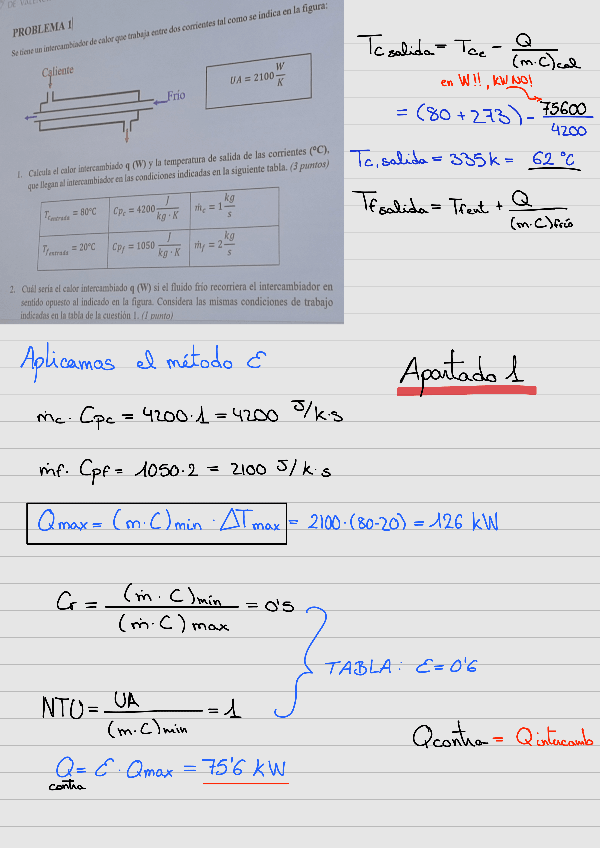 DE VALEN
PROBLEMA 1
Se tiene un intercambiador de calor que trabaja entre dos corrientes tal como se indica en la figura:
Caliente
Frío
UA = 2100 W/K
1. Calcula el calor intercambiado q (W) y la temperatura de salida de las corrientes (°C),
que llegan al intercambiador en las condiciones indicadas en la siguiente tabla. (3 puntos)
T_centrada = 80°C Cp_c = 4200 J/kg·K ṁ_c = 1 kg/s
T_fentrada = 20°C Cp_f = 1050 J/kg·K ṁ_f = 2 kg/s
2. Cuál sería el calor intercambiado q (W) si el fluido frío recorriera el intercambiador en
sentido opuesto al indicado en la figura. Considera las mismas condiciones de trabajo
indicadas en la tabla de la cuestión 1. (1 punto)
Tc salida = Tce - Q/(m·C)cal
en W!!, KW NO!
= (80 + 273) - 75600/4200
Tc, salida = 335 k = 62 °C
Tf salida = Tfent + Q/(m·C)frío
Aplicamos el método ε
Apartado 1
ṁc · Cpc = 4200·1 = 4200 J/k·s
ṁf · Cpf = 1050·2 = 2100 J/k·s
Qmax = (ṁ·C)min · ΔTmax = 2100·(80-20) = 126 kW
Cr = (ṁ·C)min/(ṁ·C)max = 0'5
TABLA: ε = 0'6
NTU = UA/(m·C)min = 1
Qcontra = Qintercamb
Q contra = ε · Qmax = 75'6 kW